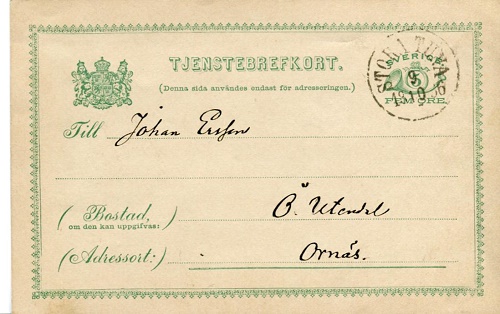 TJENSTEBREFKORT.
(Denna sida användes endast för adresseringen.)
SVERIGE
FEM ÖRE
9
1886
Till Johan Ersson
(Bostad,
om den kan uppgifvas:)
Ö Utendal
(Adressort:) Ornäs.